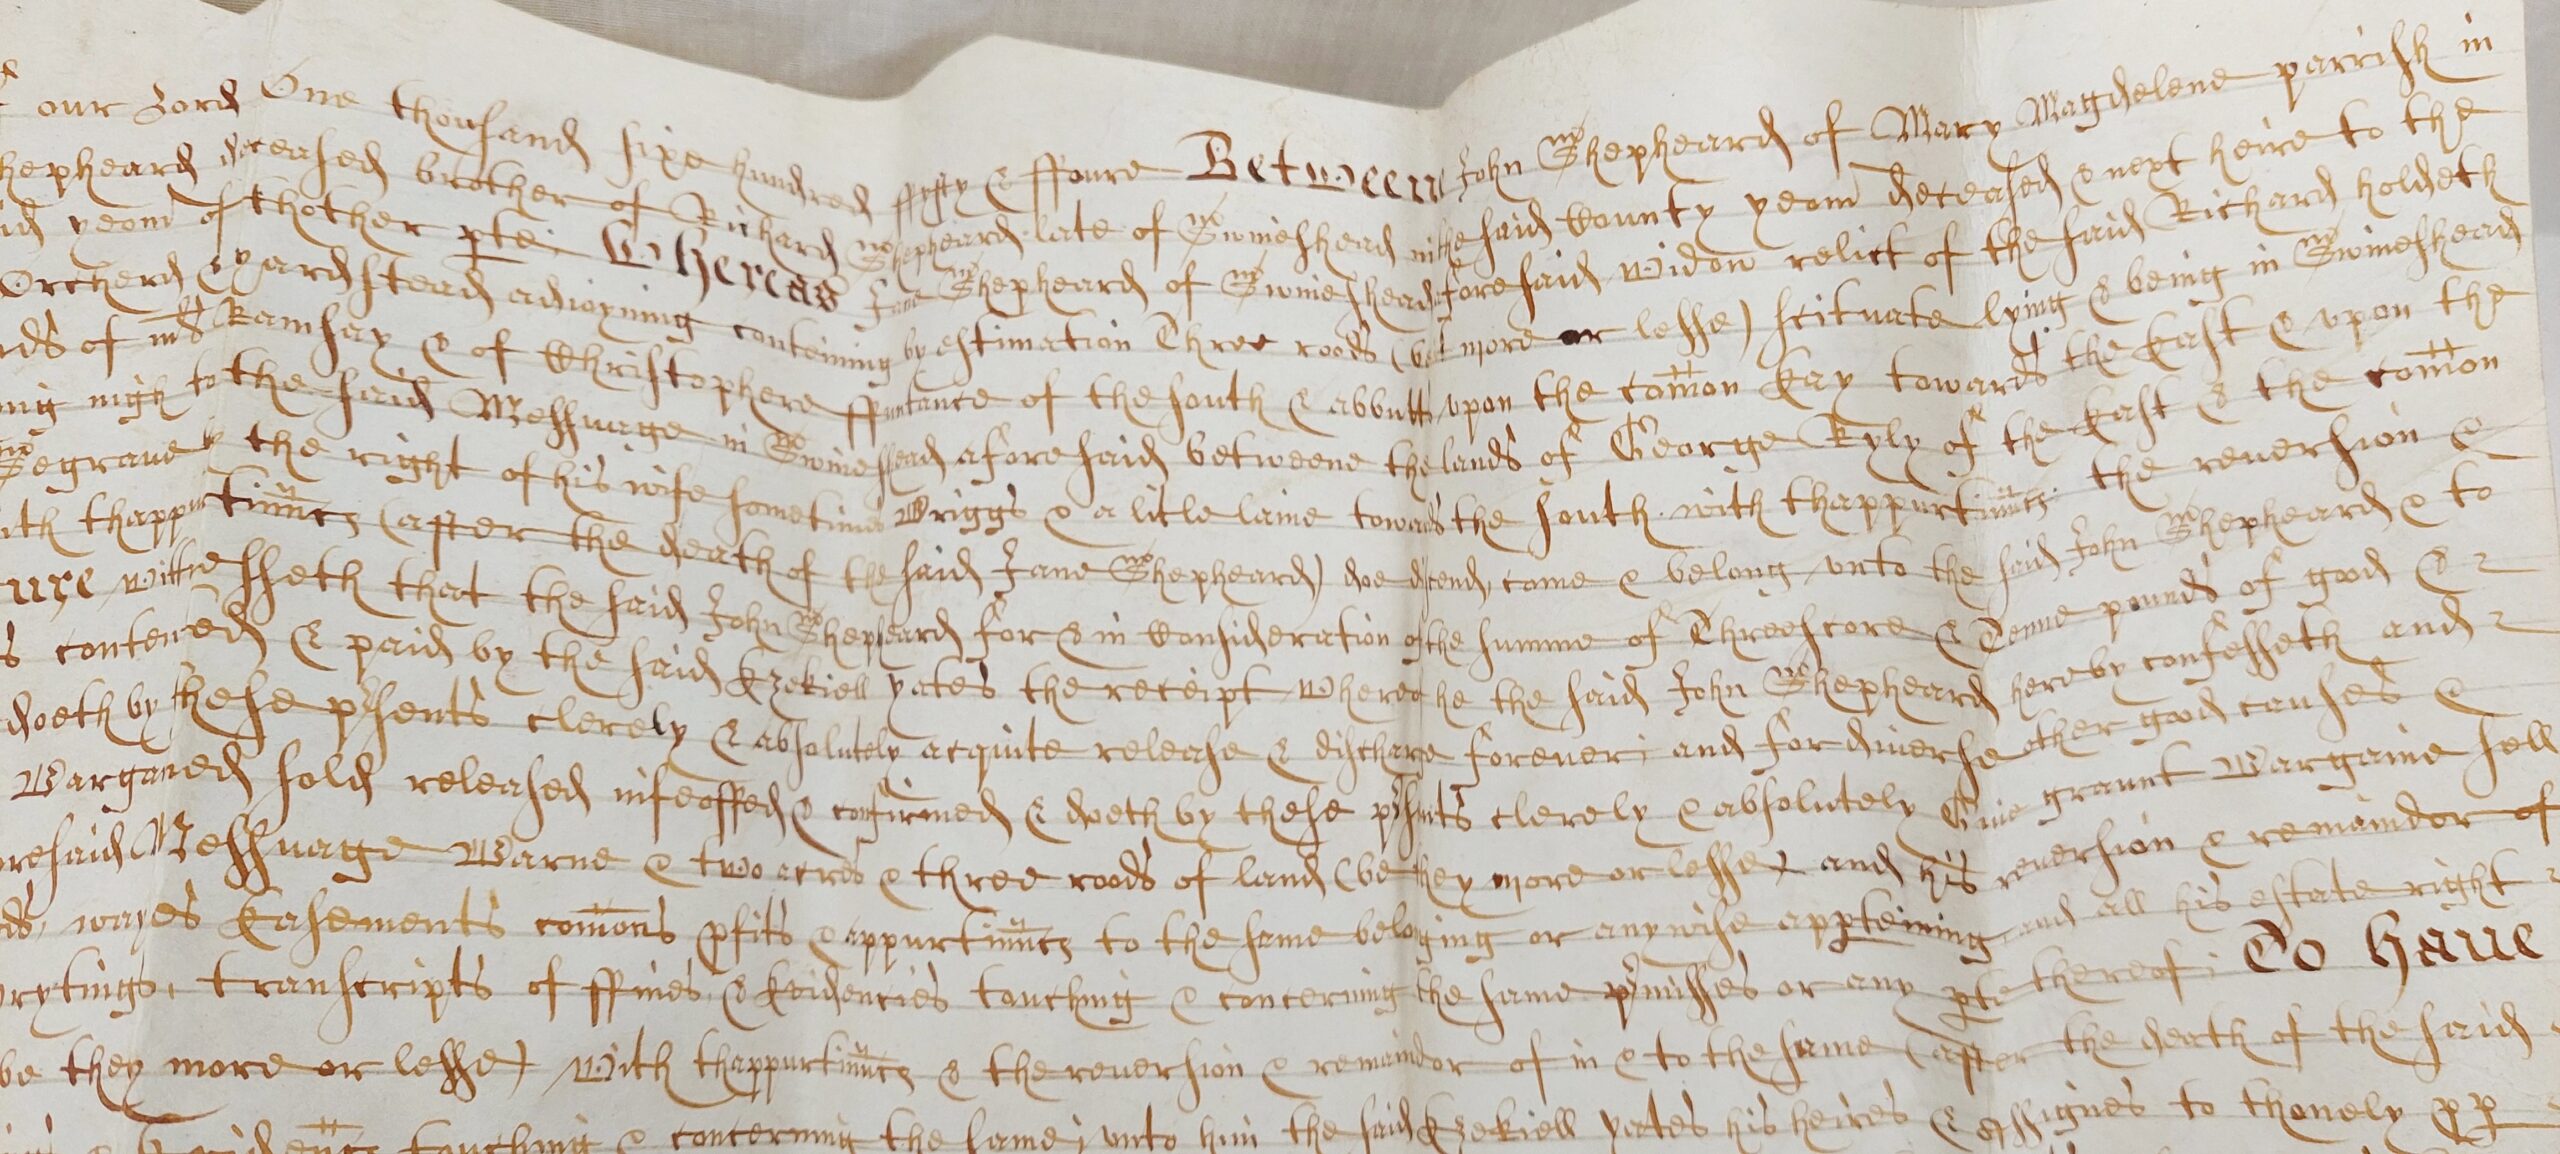 our Lord One thousand sixe hundred ffyfty & ffoure Betweene John Shepheard of Mary Magdelene parrish in
hepheard deceased brother of Richard Shepheard late of Swineshead in the said County yeom deceased & next heire to the
id yeom of thother pte; Whereas Jane Shepheard of Swineshead aforesaid Widow relict of the said Richard holdeth
Orcherd & yardstead adioyning conteining by estimation Three roods (be it more or lesse) scituate lying & being in Swineshead
nds of mrs Ramsay & of Christophere ffuntance of the south & abbutts upon the comon Eay towards the East & upon the
ing nigh to the said Messuage in Swineshead aforesaid betweene the lands of George Ryly of the East & the comon
Segrave the right of his wife sometimes Briggs & a litle laine towards the south with thappurtinnces the reversion &
ith thappurtinnces (after the death of the said Jane Shepheard) doe discend, come & belong unto the said John Shepheard & to
ure wittnesseth that the said John Shepheard for & in Consideration of the summe of Threescore & Tenne pounds of good &
s contented & paid by the said Ezekiell yates the receipt Whereof he the said John Shepheard hereby confesseth and
doeth by these psents clerely & absolutely acquite release & discharge forever; and for diverse other good causes &
Bargained sold released infeoffed & confirmed & doeth by these psents clerely & absolutely Give graunt Bargaine sell
oresaid Messuage Barne & two acres & three roods of land (be they more or lesse) and his reversion & remaindor of
ds, wayes Easements comons pfits & appurtinnces to the same belonging or anywise apptening, and all his estate right
rytings, transcripts of ffines, & Evidencies touching & concerning the same pmisses or any pte thereof; To Have
be they more or lesse) With thappurtinnces & the reversion & remaindor of in & to the same (after the death of the said
touching & concerning the same; unto him the said Ezekiell yates his heires & Assignes to thonely pp